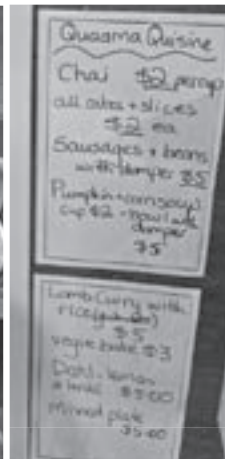 Quaama Quisine
Chai $2 percup
all cakes + slices
$2 ea
Sausages + beans
with damper $5
Pumpkin + corn soup
cup $2 - bowl with
damper
$5
Lamb Curry with
rice
$5
vegie bake $3
Dahl
$5.00
mixed plate
$5.00